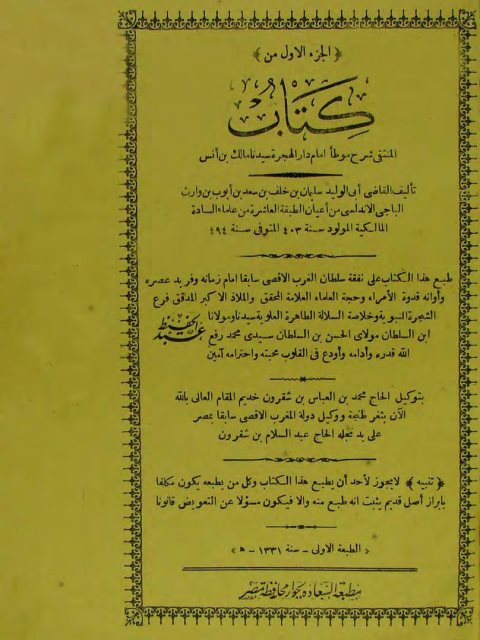 ﴿ الجزء الاول من ﴾
كِتَابُ
المنتقى شرح موطأ امام دار الهجرة سيدنا مالك بن أنس
تأليف القاضى أبى الوليد سليمان بن خلف بن سعد بن أيوب بن وارث
الباجى الاندلسى من أعيان الطبقة العاشرة من علماء السادة
المالكية المولود سنة ٤٠٣ المتوفى سنة ٤٩٤
طبع هذا الكتاب على نفقة سلطان المغرب الاقصى سابقا امام زمانه وفريد عصره
وأوانه قدوة الأمراء وحجة العلماء العلامة المحقق والملاذ الاكبر المدقق فرع
الشجرة النبوية وخلاصة السلالة الطاهرة العلوية سيدنا ومولانا
عبد الحفيظ
ابن السلطان مولاى الحسن بن السلطان سيدى محمد رفع
الله قدره وأدامه وأودع فى القلوب محبته واحترامه آمين
بتوكيل الحاج محمد بن العباس بن شقرون خديم المقام العالى بالله
الآن بثغر طنجة ووكيل دولة المغرب الاقصى سابقا بمصر
على يد نجله الحاج عبد السلام بن شقرون
﴿ تنبيه ﴾ لا يجوز لأحد أن يطبع هذا الكتاب وكل من يطبعه يكون مكلفا
بابراز أصل قديم يثبت انه طبع منه والا فيكون مسؤلا عن التعويض قانونا
﴿ الطبعة الاولى - سنة ١٣٣١ ه ﴾
مطبعة السعادة بجوار محافظة مصر